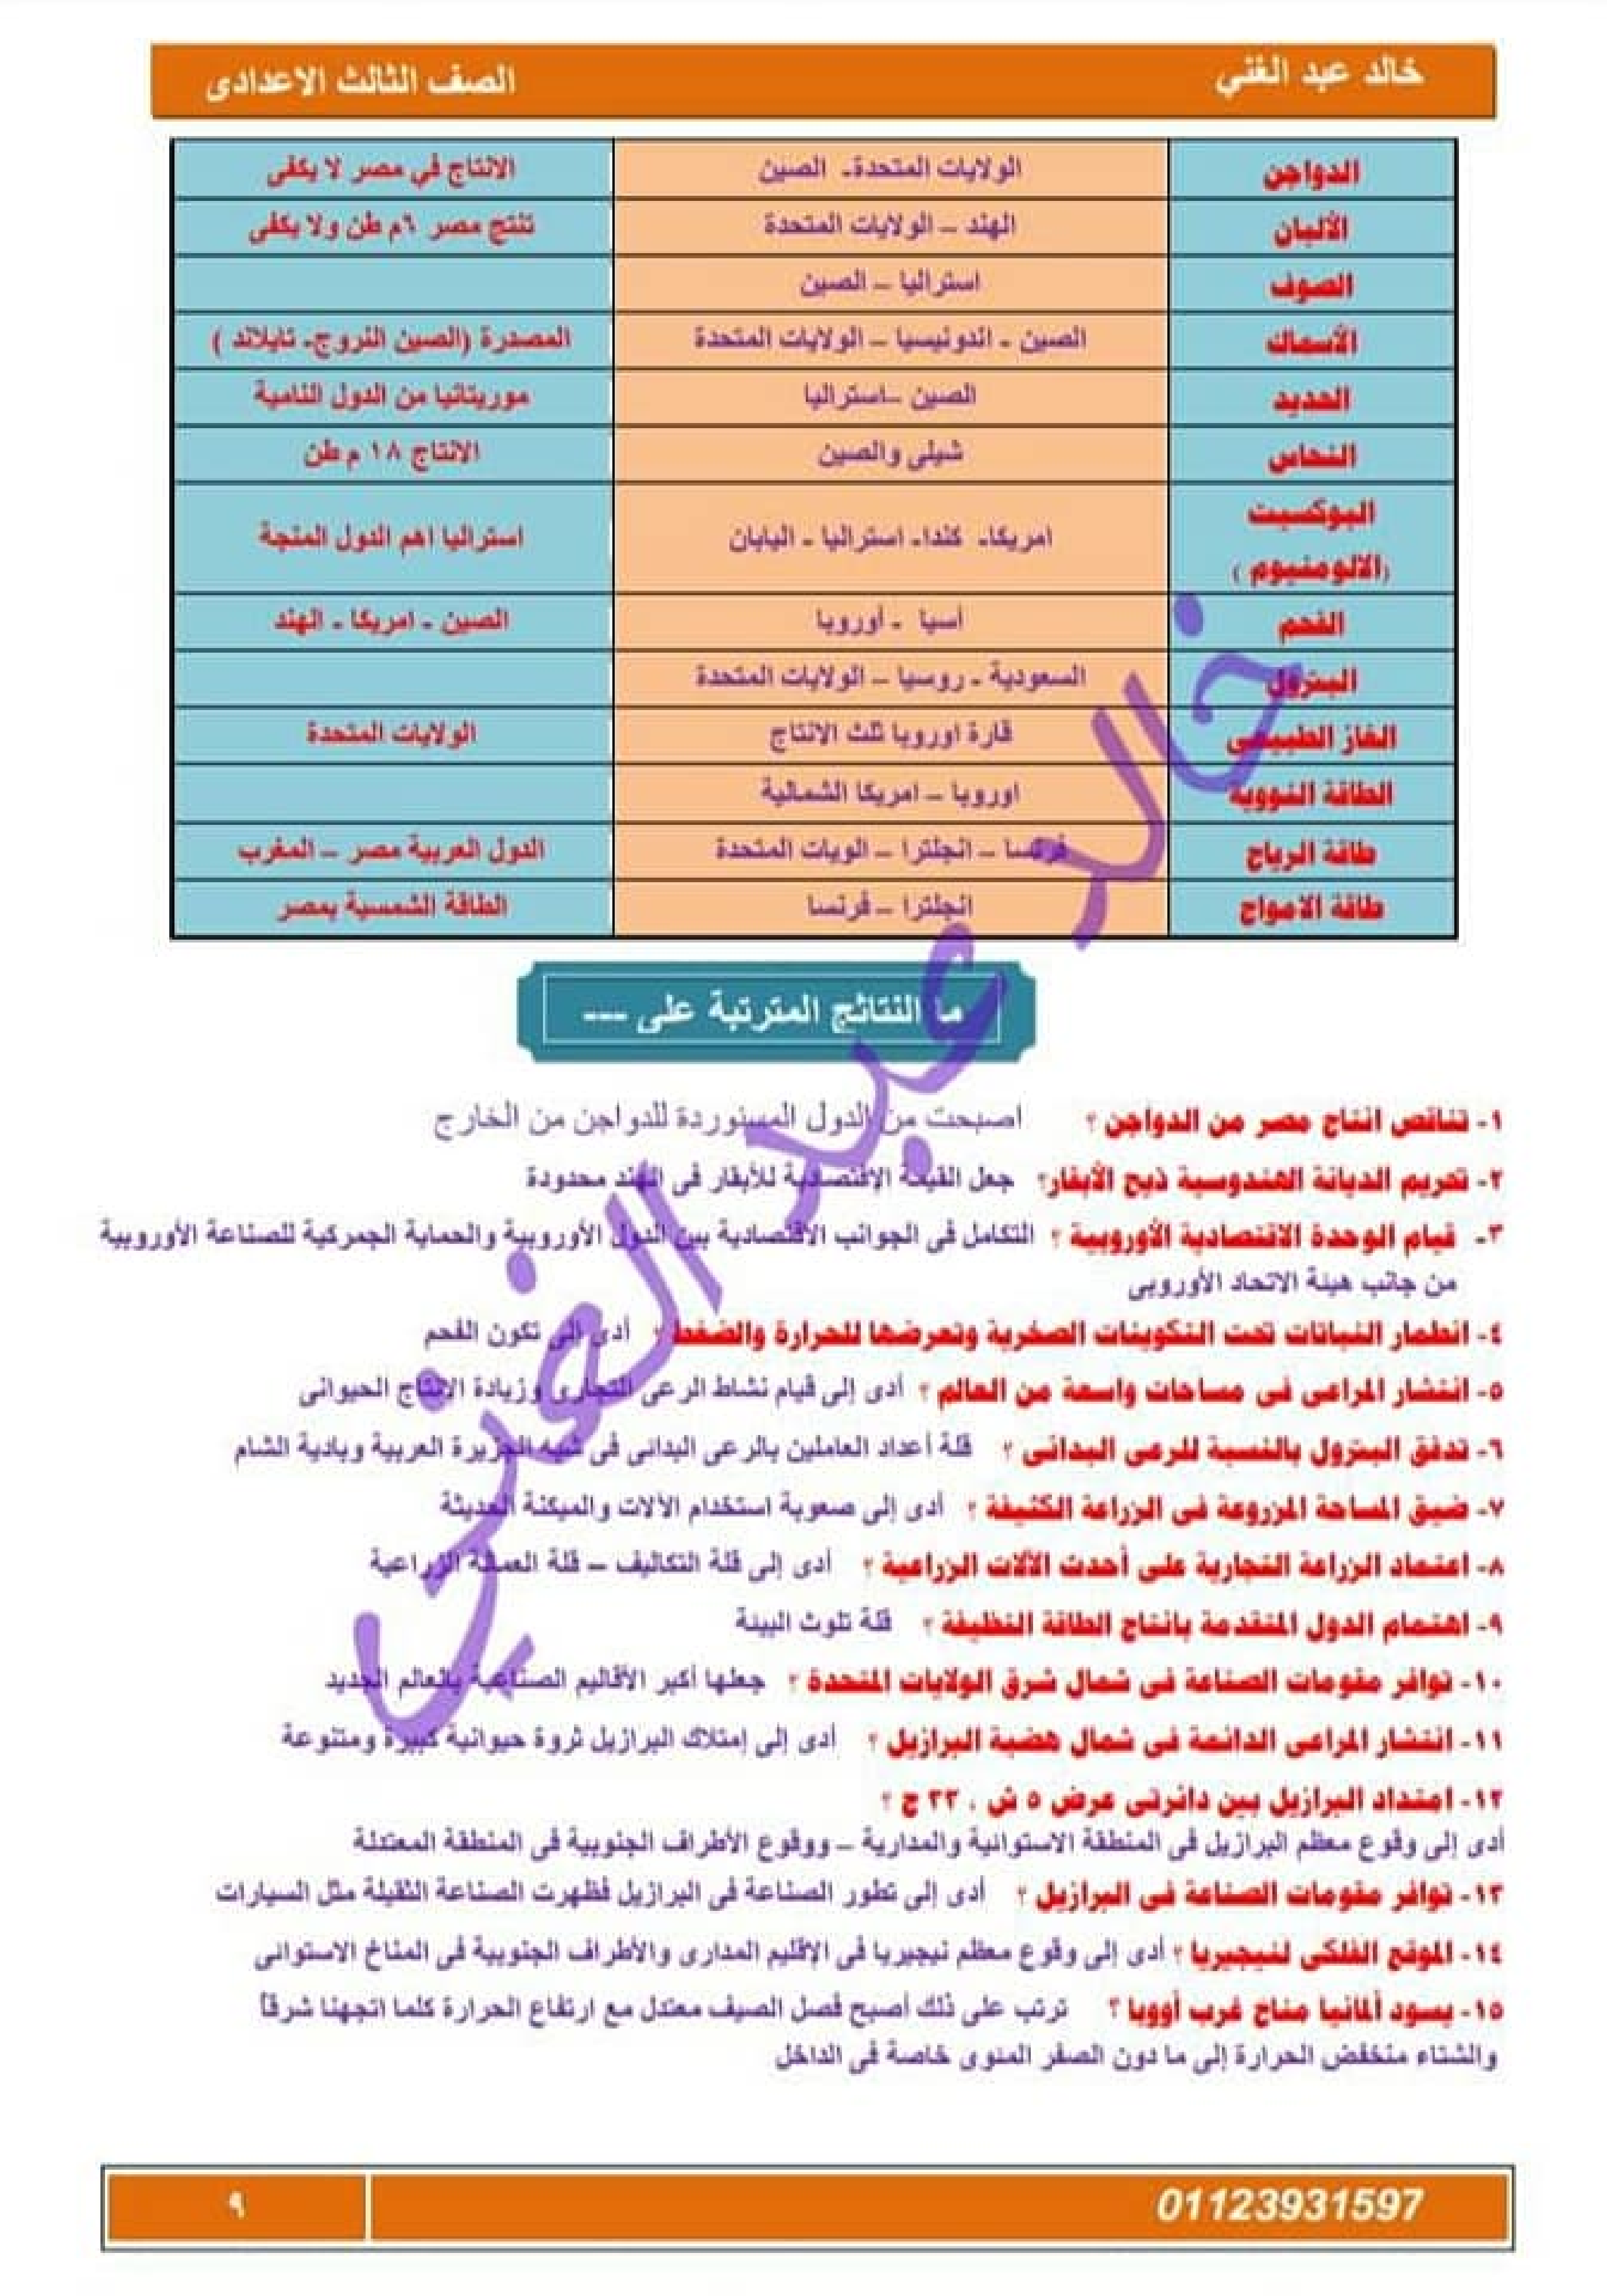 خالد عبد الغني
الصف الثالث الاعدادى
الدواجن الولايات المتحدة- الصين الانتاج في مصر لا يكفى
الألبان الهند – الولايات المتحدة تنتج مصر ٦م طن ولا يكفى
الصوف استراليا – الصين
الأسماك الصين - اندونيسيا – الولايات المتحدة المصدرة (الصين النروج- تايلاند )
الحديد الصين –استراليا موريتانيا من الدول النامية
النحاس شيلى والصين الانتاج ١٨ م طن
البوكسيت
(الالومنيوم ) امريكا- كندا- استراليا - اليابان استراليا اهم الدول المتجة
الفحم أسيا - أوروبا الصين - امريكا - الهند
البترول السعودية - روسيا – الولايات المتحدة
الغاز الطبيعى قارة اوروبا ثلث الانتاج الولايات المتحدة
الطاقة النووية اوروبا – امريكا الشمالية
طاقة الرياح فرنسا – انجلترا – الويات المتحدة الدول العربية مصر – المغرب
طاقة الامواج انجلترا – فرنسا الطاقة الشمسية بمصر
ما النتائج المترتبة على ---
١- تناقص انتاج مصر من الدواجن ؟ اصبحت من الدول المستوردة للدواجن من الخارج
٢- تحريم الديانة الهندوسية ذبح الأبقار؟ جعل القيمة الإقتصادية للأبقار فى الهند محدودة
٣- قيام الوحدة الاقتصادية الأوروبية ؟ التكامل فى الجوانب الاقتصادية بين الدول الأوروبية والحماية الجمركية للصناعة الأوروبية
من جانب هيئة الاتحاد الأوروبى
٤- انطمار النباتات تحت التكوينات الصخرية وتعرضها للحرارة والضغط ؟ أدى إلى تكون الفحم
٥- انتشار المراعى فى مساحات واسعة من العالم ؟ أدى إلى قيام نشاط الرعى التجارى وزيادة الإنتاج الحيوانى
٦- تدفق البترول بالنسبة للرعى البدائى ؟ قلة أعداد العاملين بالرعى البدائى فى شبه الجزيرة العربية وبادية الشام
٧- ضيق المساحة المزروعة فى الزراعة الكثيفة ؟ أدى إلى صعوبة استخدام الألات والميكنة الحديثة
٨- اعتماد الزراعة التجارية على أحدث الآلات الزراعية ؟ أدى إلى قلة التكاليف – قلة العمالة الزراعية
٩- اهتمام الدول المتقدمة بانتاج الطاقة النظيفة ؟ قلة تلوث البيئة
١٠- توافر مقومات الصناعة فى شمال شرق الولايات المتحدة ؟ جعلها أكبر الأقاليم الصناعية بالعالم الجديد
١١- انتشار المراعى الدائمة فى شمال هضبة البرازيل ؟ أدى إلى إمتلاك البرازيل ثروة حيوانية كبيرة ومتنوعة
١٢- امتداد البرازيل بين دائرتى عرض ٥ ش ، ٣٣ ج ؟
أدى إلى وقوع معظم البرازيل فى المنطقة الاستوائية والمدارية – ووقوع الأطراف الجنوبية فى المنطقة المعتدلة
١٣- توافر مقومات الصناعة فى البرازيل ؟ أدى إلى تطور الصناعة فى البرازيل فظهرت الصناعة الثقيلة مثل السيارات
١٤- الموقع الفلكى لنيجيريا ؟ أدى إلى وقوع معظم نيجيريا فى الإقليم المدارى والأطراف الجنوبية فى المناخ الاستوائى
١٥- يسود ألمانيا مناخ غرب أووبا ؟ ترتب على ذلك أصبح فصل الصيف معتدل مع ارتفاع الحرارة كلما اتجهنا شرقاً
والشتاء منخفض الحرارة إلى ما دون الصفر المئوى خاصة فى الداخل
خالد عبد الغني
01123931597
٩